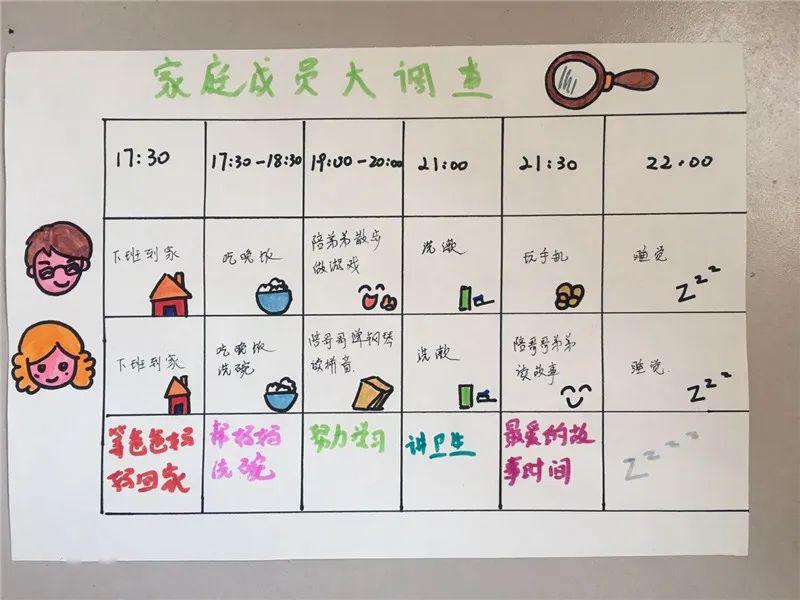 家庭成员大调查
17:30
17:30-18:30
19:00-20:00
21:00
21:30
22:00
下班到家
吃晚饭
陪弟弟散步
做游戏
洗漱
玩手机
睡觉
zzz
下班到家
吃晚饭
洗碗
陪哥哥弹钢琴
读拼音
洗漱
陪哥哥弟弟
读故事
睡觉
zzz
等爸爸妈
妈回家
帮妈妈
洗碗
努力学习
讲卫生
最爱的故
事时间
zzzz